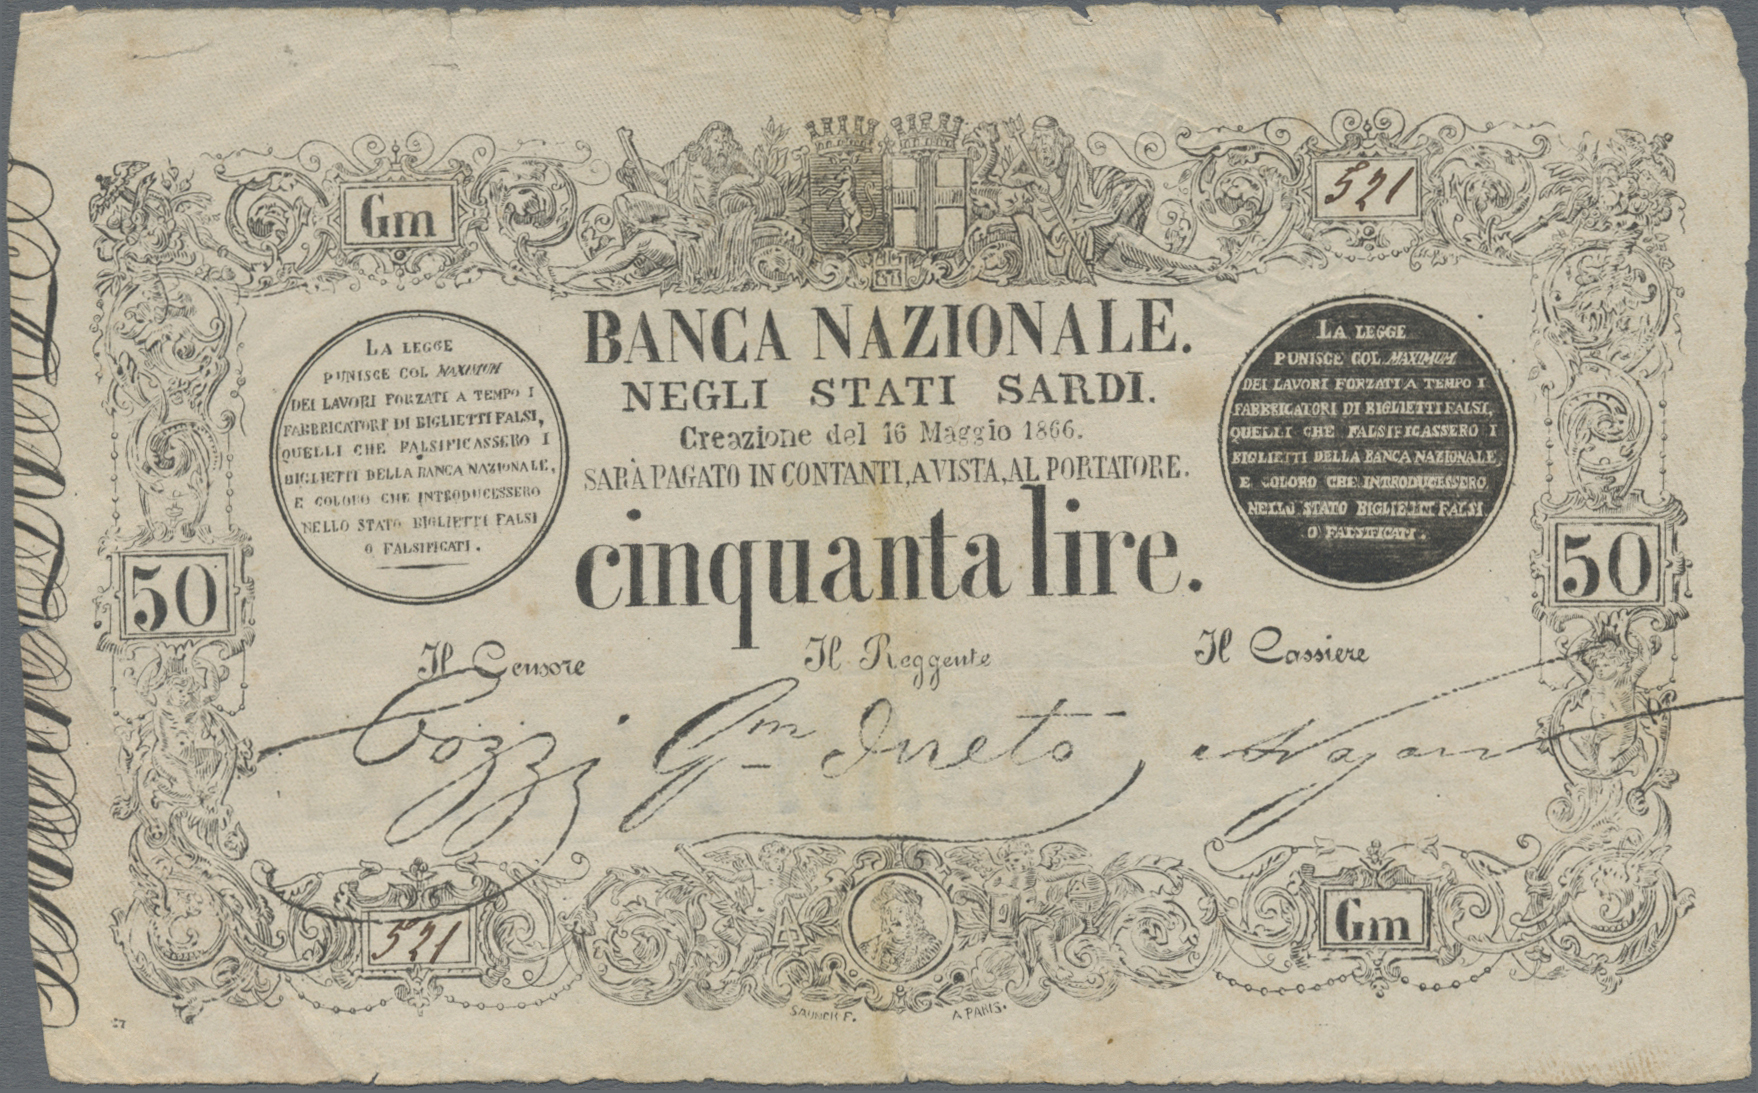 Gm
521
BANCA NAZIONALE.
NEGLI STATI SARDI.
Creazione del 16 Maggio 1866.
SARÀ PAGATO IN CONTANTI, A VISTA, AL PORTATORE.
cinquanta lire.
LA LEGGE
PUNISCE COL MAXIMUM
DEI LAVORI FORZATI A TEMPO I
FABBRICATORI DI BIGLIETTI FALSI,
QUELLI CHE FALSIFICASSERO I
BIGLIETTI DELLA BANCA NAZIONALE,
E COLORO CHE INTRODUCESSERO
NELLO STATO BIGLIETTI FALSI
O FALSIFICATI.
LA LEGGE
PUNISCE COL MAXIMUM
DEI LAVORI FORZATI A TEMPO I
FABBRICATORI DI BIGLIETTI FALSI,
QUELLI CHE FALSIFICASSERO I
BIGLIETTI DELLA BANCA NAZIONALE
E COLORO CHE INTRODUCESSERO
NELLO STATO BIGLIETTI FALSI
O FALSIFICATI.
50
50
Il Censore
Il Reggente
Il Cassiere
Cozzi
Gm
521
Gm
A PARIS.